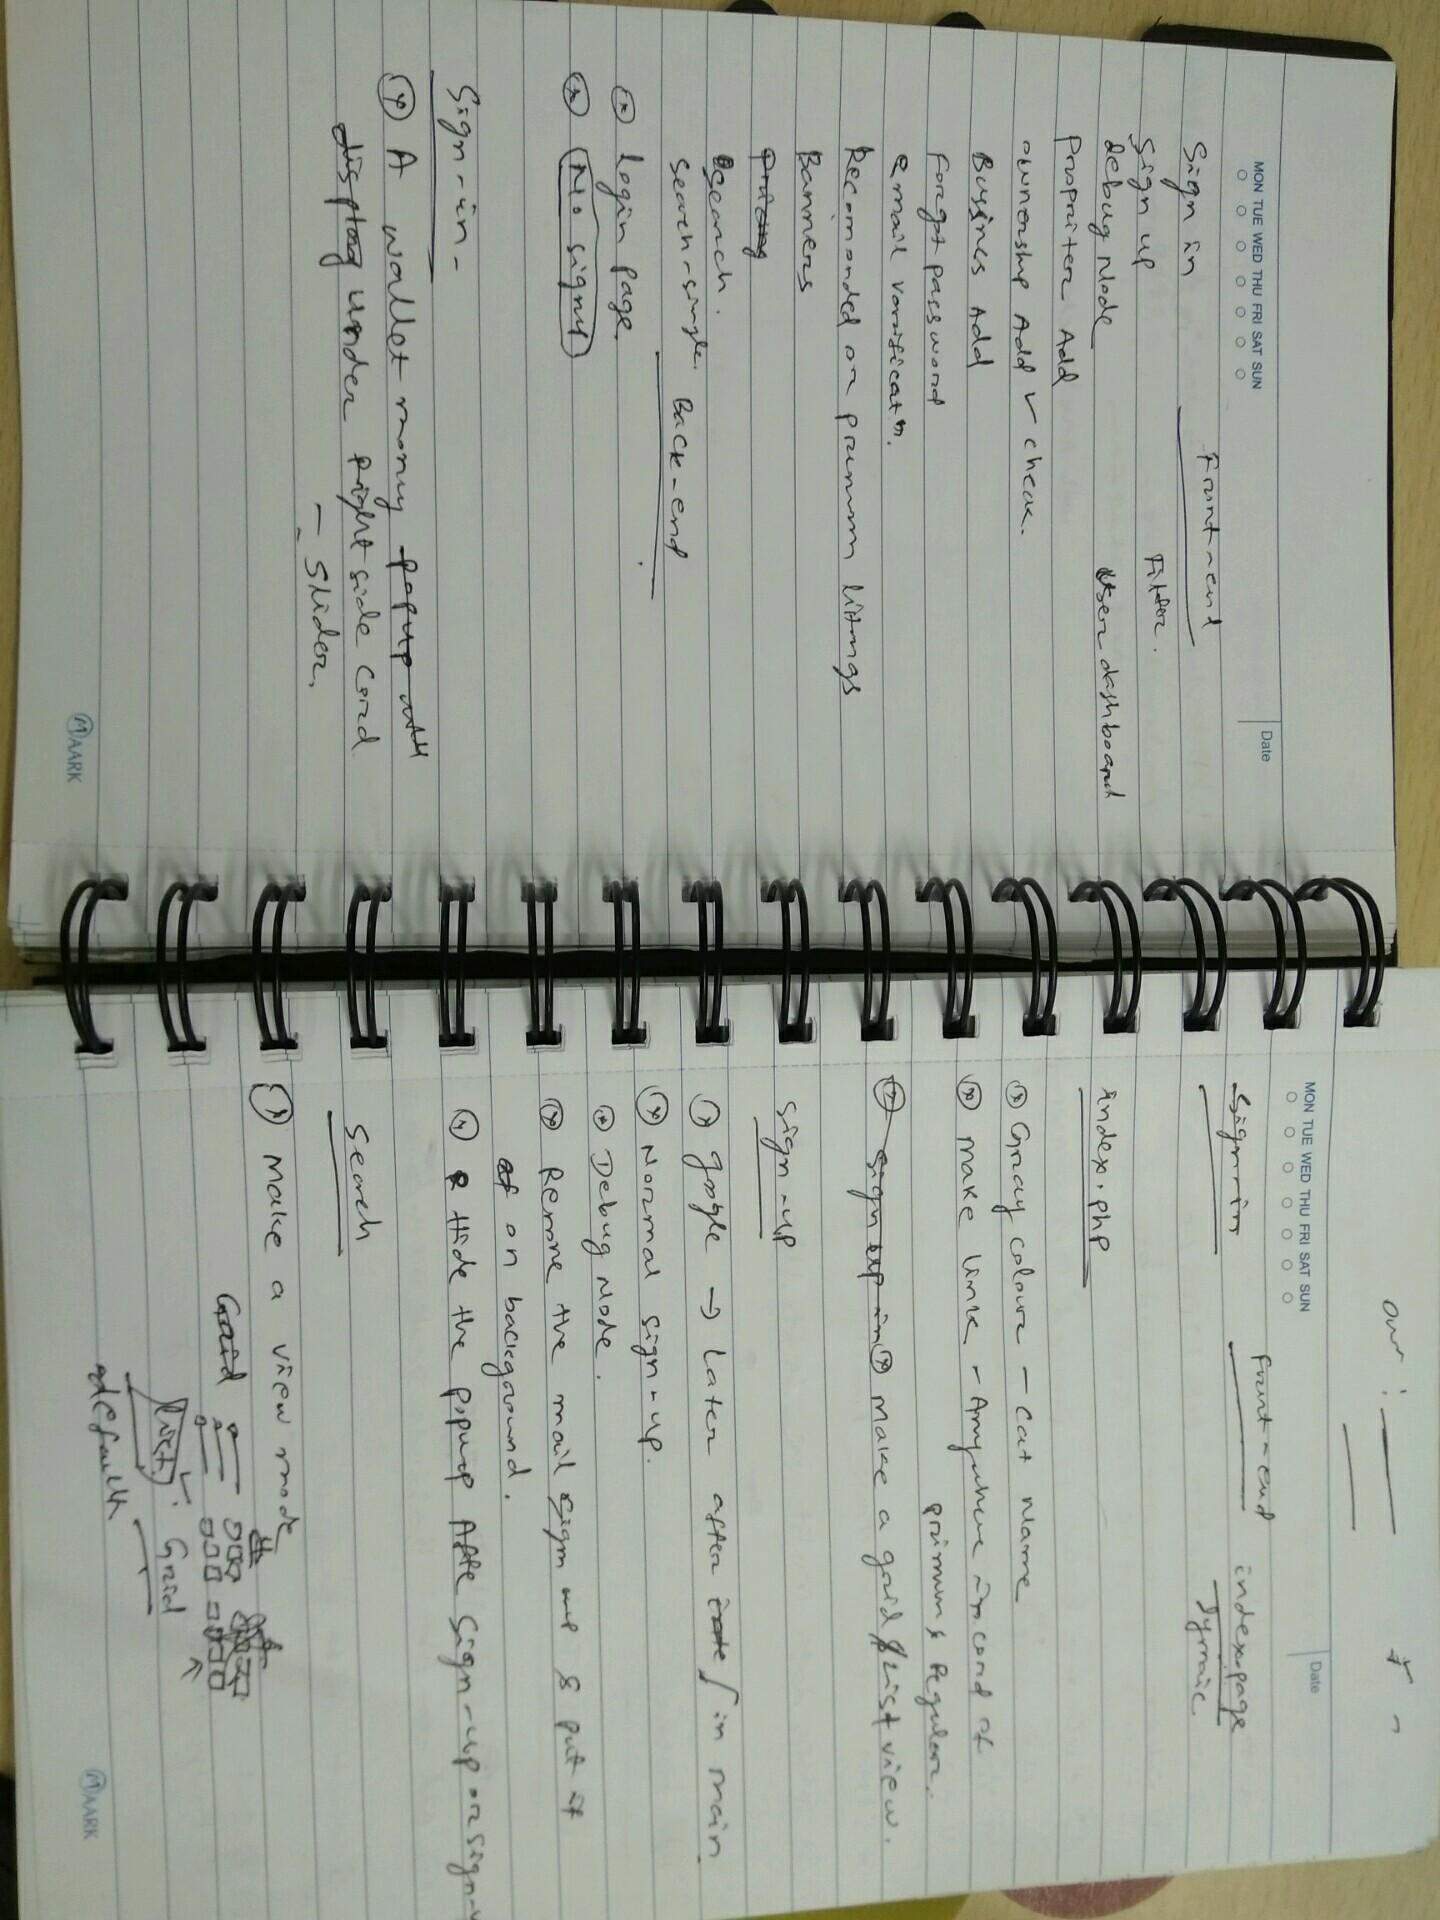 MON TUE WED THU FRI SAT SUN
Date
Front-end
Sign in
Sign up
Filter.
debug Mode
User dashboard
Propriter Add
ownership Add ✓ check.
Busines Add
forgot password
email varificatn.
Recomonded or primum litings
Banners
Search.
search-single.
Back-end
* Login page.
* No signup
Sign-in -
* A wallet money popup
display under right side card
- Slider.
MAARK
our :
MON TUE WED THU FRI SAT SUN
Date
Sign-in
Front-end
index.page
Dynmic
index.php
* Gray colour - cat Name
* Make link - Anywhere in card of
primum & Regular.
* sign up in * Make a grid / List view.
Sign-up
* google → Later after in main
* Normal sign-up.
* Debug Mode.
* Remove the mail sign up & put it
on background.
* Hide the popup Afte Sign-up or sign-
Search
* Make a view mode
Grid
List ✓ : Grid
default
MAARK